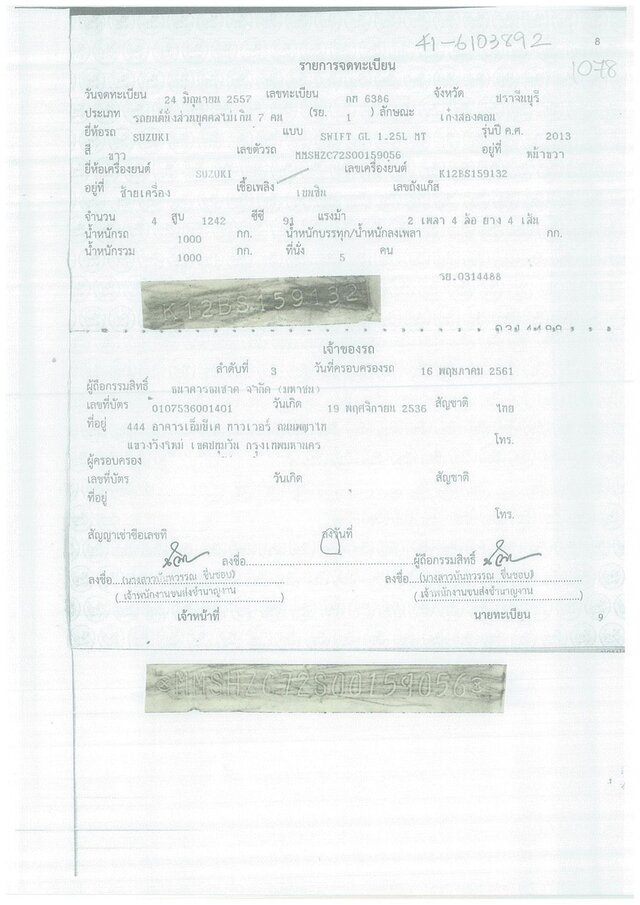 41-6103892
8
รายการจดทะเบียน
1078
วันจดทะเบียน 24 มิถุนายน 2557 เลขทะเบียน กท 6386 จังหวัด ปราจีนบุรี
ประเภท รถยนต์นั่งส่วนบุคคลไม่เกิน 7 คน (รย. 1 ) ลักษณะ เก๋งสองตอน
ยี่ห้อรถ SUZUKI แบบ SWIFT GL 1.25L MT รุ่นปี ค.ศ. 2013
สี ขาว เลขตัวรถ MMSHZC72S00159056 อยู่ที่ หน้าขวา
ยี่ห้อเครื่องยนต์ SUZUKI เลขเครื่องยนต์ K12BS159132
อยู่ที่ ซ้ายเครื่อง เชื้อเพลิง เบนซิน เลขถังแก๊ส
จำนวน 4 สูบ 1242 ซีซี 91 แรงม้า 2 เพลา 4 ล้อ ยาง 4 เส้น
น้ำหนักรถ 1000 กก. น้ำหนักบรรทุก/น้ำหนักลงเพลา กก.
น้ำหนักรวม 1000 กก. ที่นั่ง 5 คน
รย.0314488
K12BS159132
เจ้าของรถ
ลำดับที่ 3 วันที่ครอบครองรถ 16 พฤษภาคม 2561
ผู้ถือกรรมสิทธิ์ ธนาคารธนชาต จำกัด (มหาชน)
เลขที่บัตร 0107536001401 วันเกิด 19 พฤศจิกายน 2536 สัญชาติ ไทย
ที่อยู่ 444 อาคารเอ็มบีเค ทาวเวอร์ ถนนพญาไท
แขวงวังใหม่ เขตปทุมวัน กรุงเทพมหานคร โทร.
ผู้ครอบครอง
เลขที่บัตร วันเกิด สัญชาติ
ที่อยู่
โทร.
สัญญาเช่าซื้อเลขที่ ลงวันที่
ลงชื่อ ผู้ถือกรรมสิทธิ์
ลงชื่อ (นางสาวนันทวรรณ ชื่นชอบ) ลงชื่อ (นางสาวนันทวรรณ ชื่นชอบ)
(เจ้าพนักงานขนส่งชำนาญงาน) (เจ้าพนักงานขนส่งชำนาญงาน)
เจ้าหน้าที่ นายทะเบียน 9
MMSHZC72S00159056